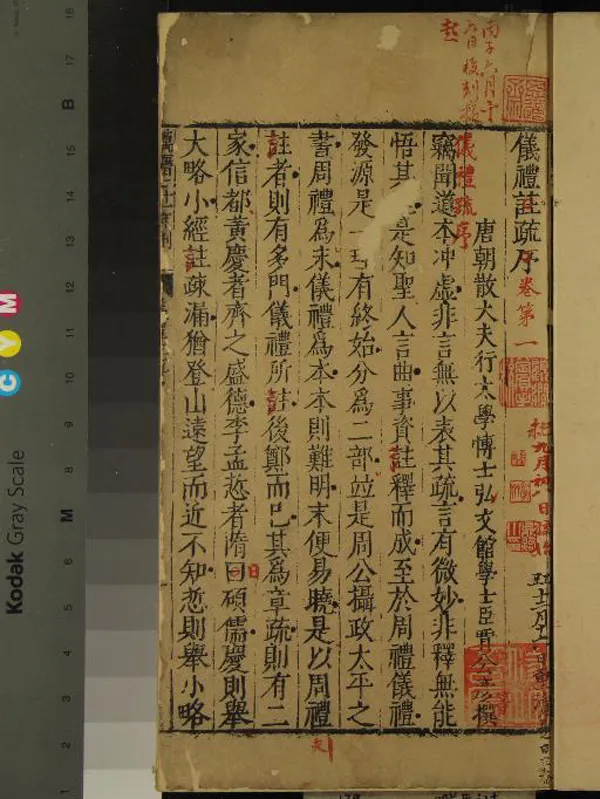 儀禮註疏序
卷第一
唐朝散大夫行太學博士弘文館學士臣賈公彥撰
儀禮疏序
竊聞道本冲虛非言無以表其疏言有微妙非釋無能
悟其是知聖人言曲事資註釋而成至於周禮儀禮
發源是一有終始分為二部並是周公攝政太平之
書周禮為末儀禮為本本則難明末便易曉是以周禮
註者則有多門儀禮所註後鄭而已其為章疏則有二
家信都黃慶者齊之盛德李孟悊者隋曰碩儒慶則舉
大略小經註疎漏猶登山遠望而近不知悊則舉小略
Kodak Gray Scale
C Y M
B
M
18
17
16
15
14
13
12
11
10
9
8
7
6
5
4
3
2
1